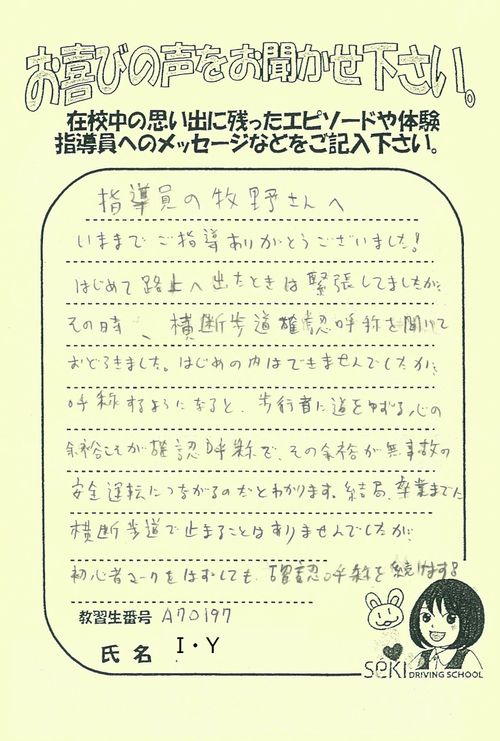 お喜びの声をお聞かせ下さい。
在校中の思い出に残ったエピソードや体験
指導員へのメッセージなどをご記入下さい。
指導員の牧野さんへ
いままでご指導ありがとうございました!
はじめて路上へ出たときは緊張してましたが、
その時、横断歩道確認呼称を聞いて
おどろきました。はじめの内はできませんでしたが、
呼称するようになると、歩行者に道をゆずる心の
余裕こそが確認呼称で、その余裕が無事故の
安全運転につながるのだとわかります。結局、卒業までに
横断歩道で止まることはありませんでしたが、
初心者マークをはずしても、確認呼称を続けます
教習生番号 A70197
氏名 I・Y
SEKI DRIVING SCHOOL